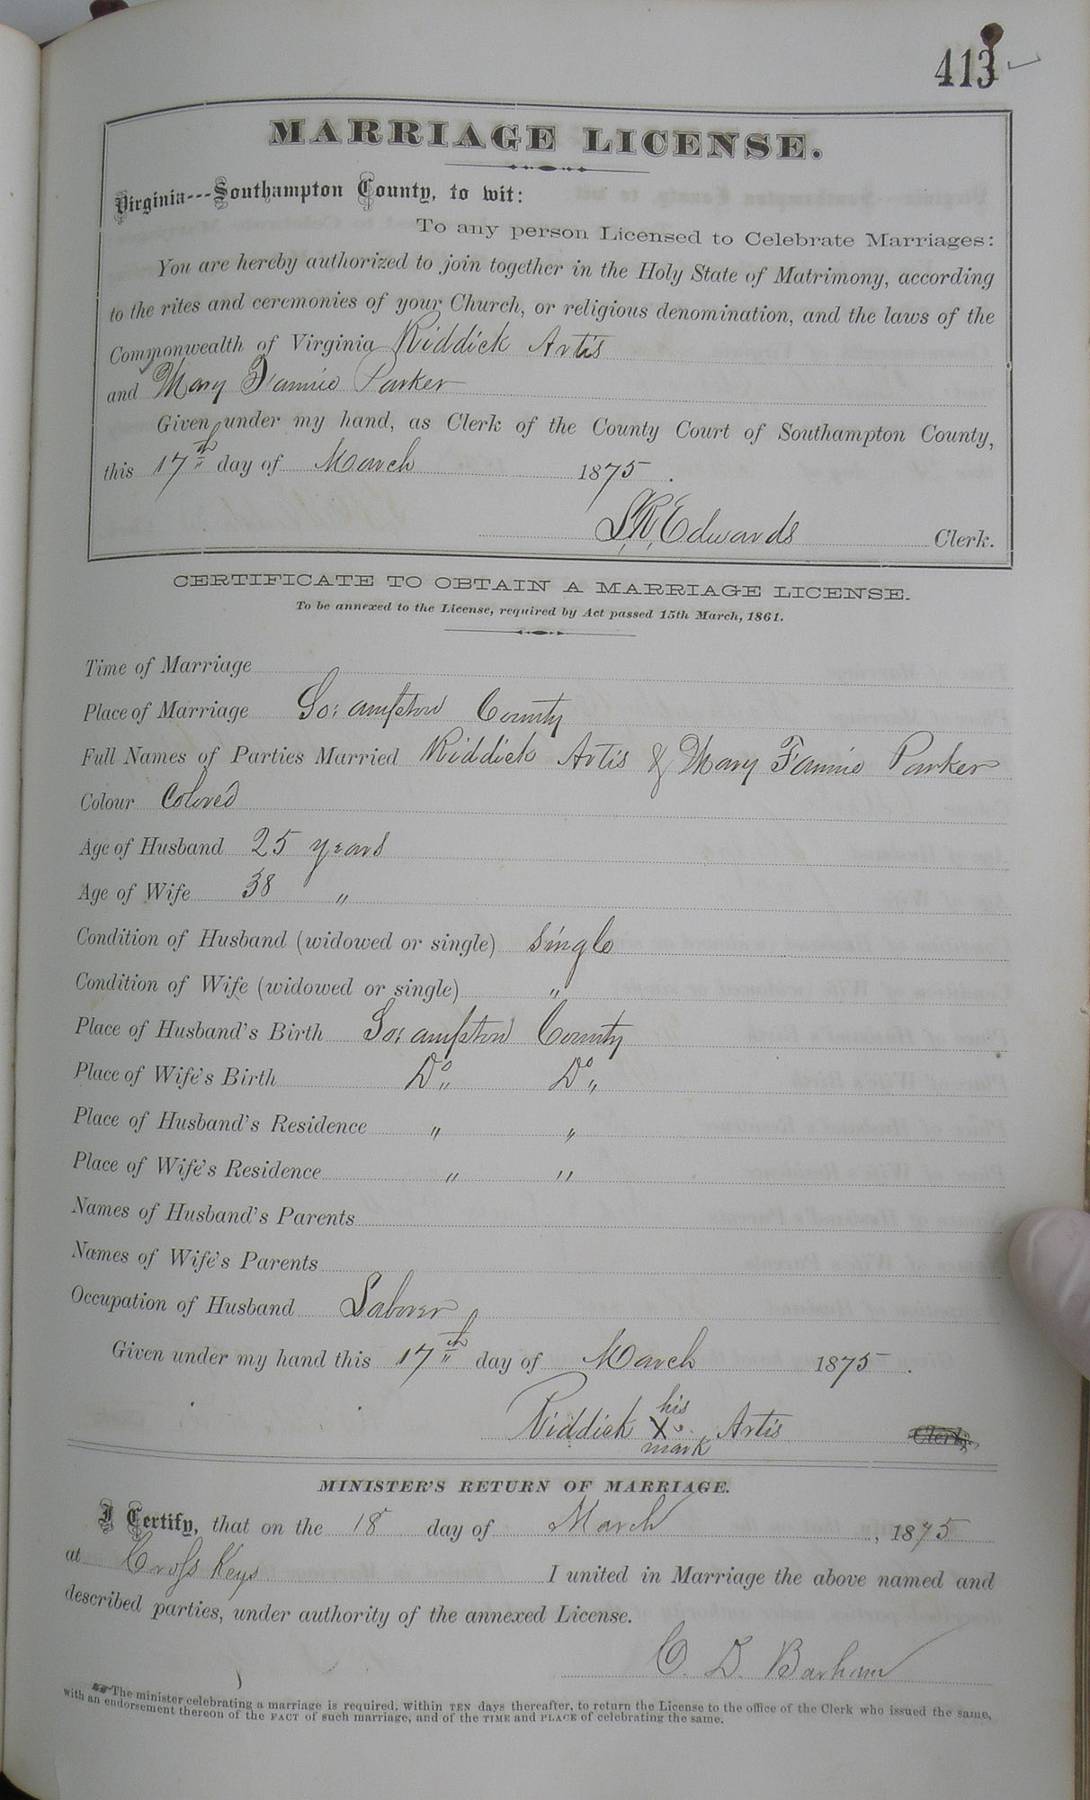 413
MARRIAGE LICENSE.
Virginia---Southampton County, to wit:
To any person Licensed to Celebrate Marriages:
You are hereby authorized to join together in the Holy State of Matrimony, according
to the rites and ceremonies of your Church, or religious denomination, and the laws of the
Commonwealth of Virginia Riddick Artis
and Mary Fannie Parker
Given under my hand, as Clerk of the County Court of Southampton County,
this 17th day of March 1875.
L. R. Edwards Clerk.
CERTIFICATE TO OBTAIN A MARRIAGE LICENSE.
To be annexed to the License, required by Act passed 15th March, 1861.
Time of Marriage
Place of Marriage So: ampton County
Full Names of Parties Married Riddick Artis & Mary Fannie Parker
Colour Colored
Age of Husband 25 years
Age of Wife 38 "
Condition of Husband (widowed or single) single
Condition of Wife (widowed or single) "
Place of Husband's Birth So: ampton County
Place of Wife's Birth Do " Do "
Place of Husband's Residence " "
Place of Wife's Residence " "
Names of Husband's Parents
Names of Wife's Parents
Occupation of Husband Laborer
Given under my hand this 17th day of March 1875.
Riddick his X mark Artis Clerk.
MINISTER'S RETURN OF MARRIAGE.
I Certify, that on the 18 day of March, 1875
at Cross Keys I united in Marriage the above named and
described parties, under authority of the annexed License.
C. D. Barham
The minister celebrating a marriage is required, within TEN days thereafter, to return the License to the office of the Clerk who issued the same,
with an endorsement thereon of the FACT of such marriage, and of the TIME and PLACE of celebrating the same.